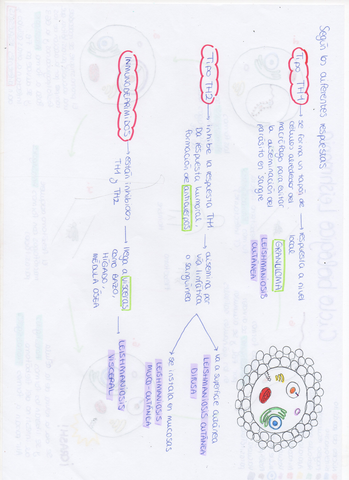 Según los diferentes respuestas
Tipo TH1
→ se forma un tapón de
células alrededor del
macrófago para evitar
la diseminación del
parásito en sangre
→ respuesta a nivel
local
GRANULOMA
LEISHMANIOSIS
CUTÁNEA
Tipo TH2
→ inhibe la respuesta TH1
Da respuesta humoral,
formación de anticuerpos
→ disemina por
vía linfática
o sanguínea
→ va a superficie cutánea
LEISHMANIOSIS CUTÁNEA
DIFUSA
→ se instala en mucosas
LEISHMANIOSIS
MUCO-CUTÁNEA
INMUNODEPRIMIDOS
→ están inhibidas
TH1 y TH2
→ llega a vísceras
como BAZO,
HÍGADO,
MÉDULA ÓSEA
→ LEISHMANIOSIS
VISCERAL